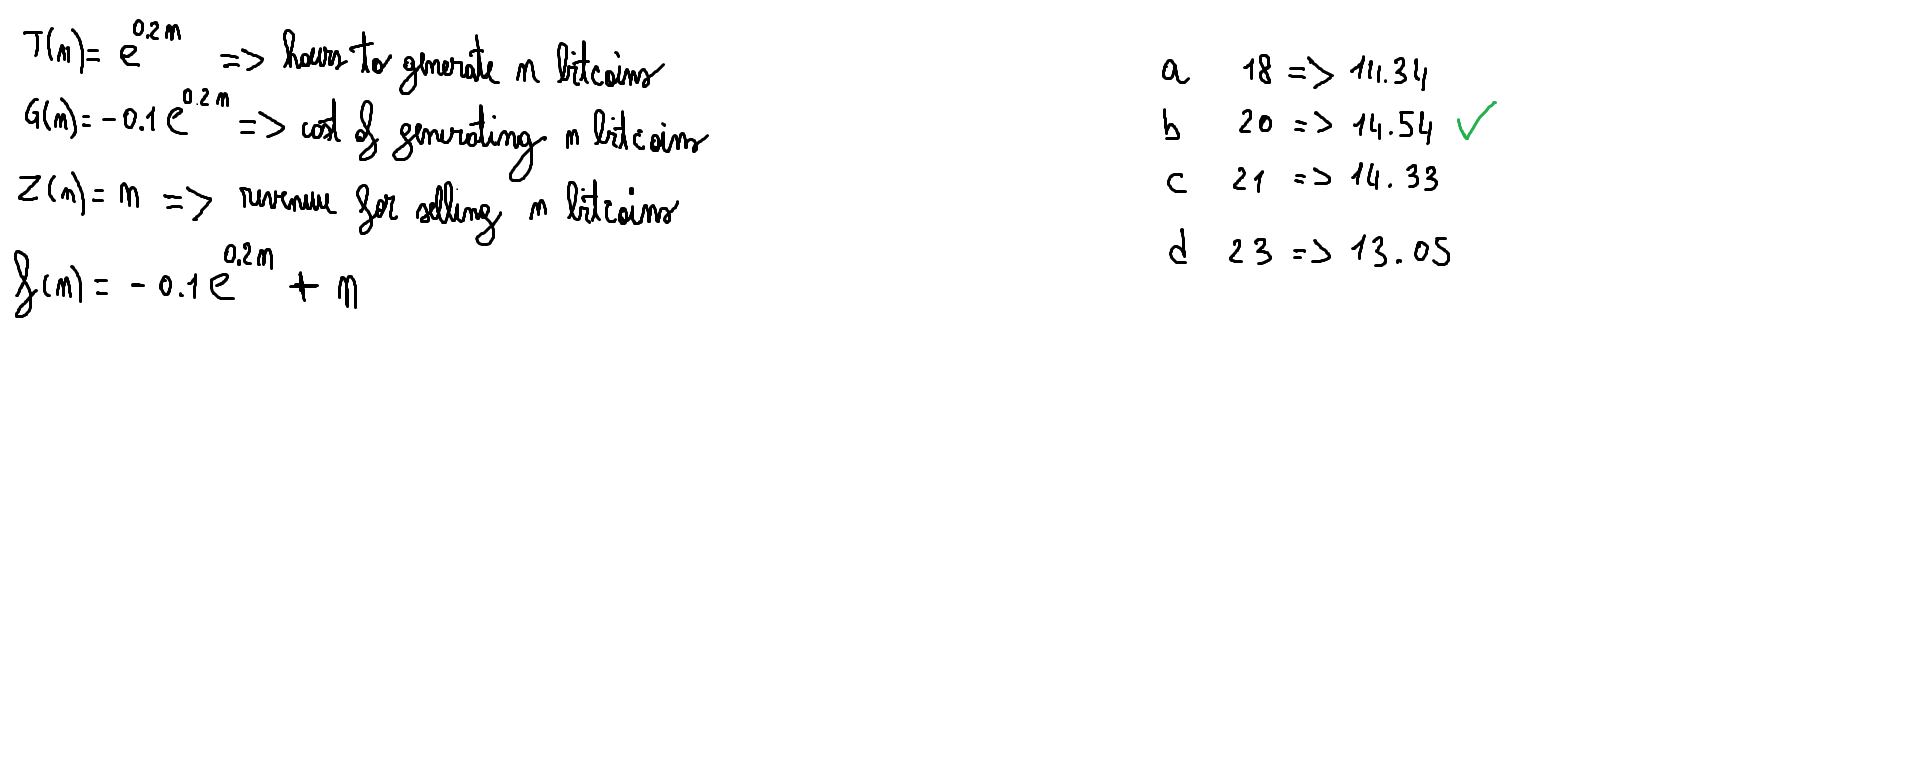 T(n) = e^0.2n => hours to generate n bitcoins
G(n) = -0.1 e^0.2n => cost of generating n bitcoins
Z(n) = n => revenue for selling n bitcoins
f(n) = -0.1 e^0.2n + n
a 18 => 14.34
b 20 => 14.54 ✓
c 21 => 14.33
d 23 => 13.05